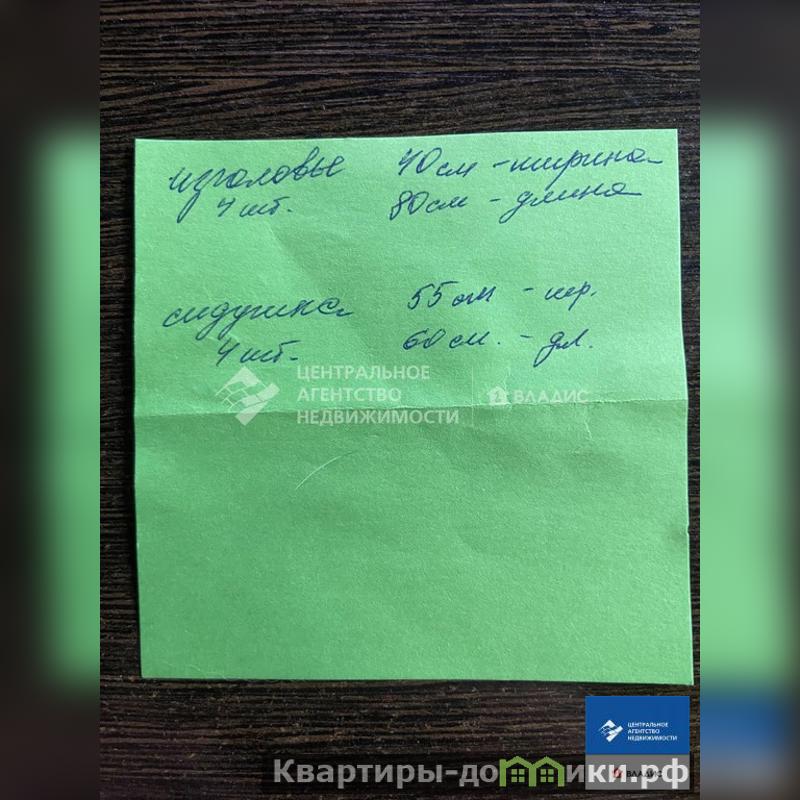 изголовье 40см - ширина
4 шт. 80см - длина
сидушка 55 см - шир.
4 шт. 60 см. - дл.
ЦЕНТРАЛЬНОЕ
АГЕНТСТВО
НЕДВИЖИМОСТИ
ВЛАДИС
ЦЕНТРАЛЬНОЕ
АГЕНТСТВО
НЕДВИЖИМОСТИ
ВЛАДИС
Квартиры-домики.рф